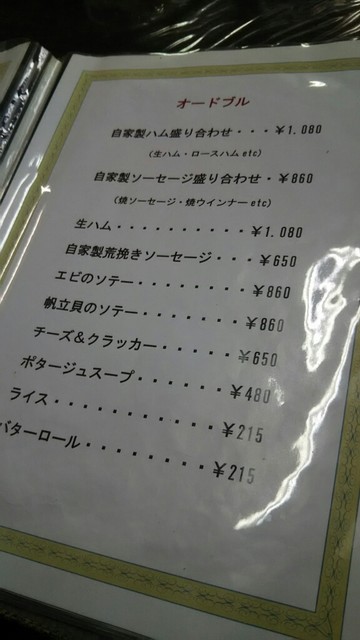 オードブル
自家製ハム盛り合わせ・・・¥1.080
(生ハム・ロースハムetc)
自家製ソーセージ盛り合わせ・¥860
(焼ソーセージ・焼ウインナーetc)
生ハム・・・・・・・・・・¥1.080
自家製荒挽きソーセージ・・・¥650
エビのソテー・・・・・・・・¥860
帆立貝のソテー・・・・・・・¥860
チーズ&クラッカー・・・・・¥650
ポタージュスープ・・・・・・¥480
ライス・・・・・・・・・・・¥215
バターロール・・・・・・・・¥215